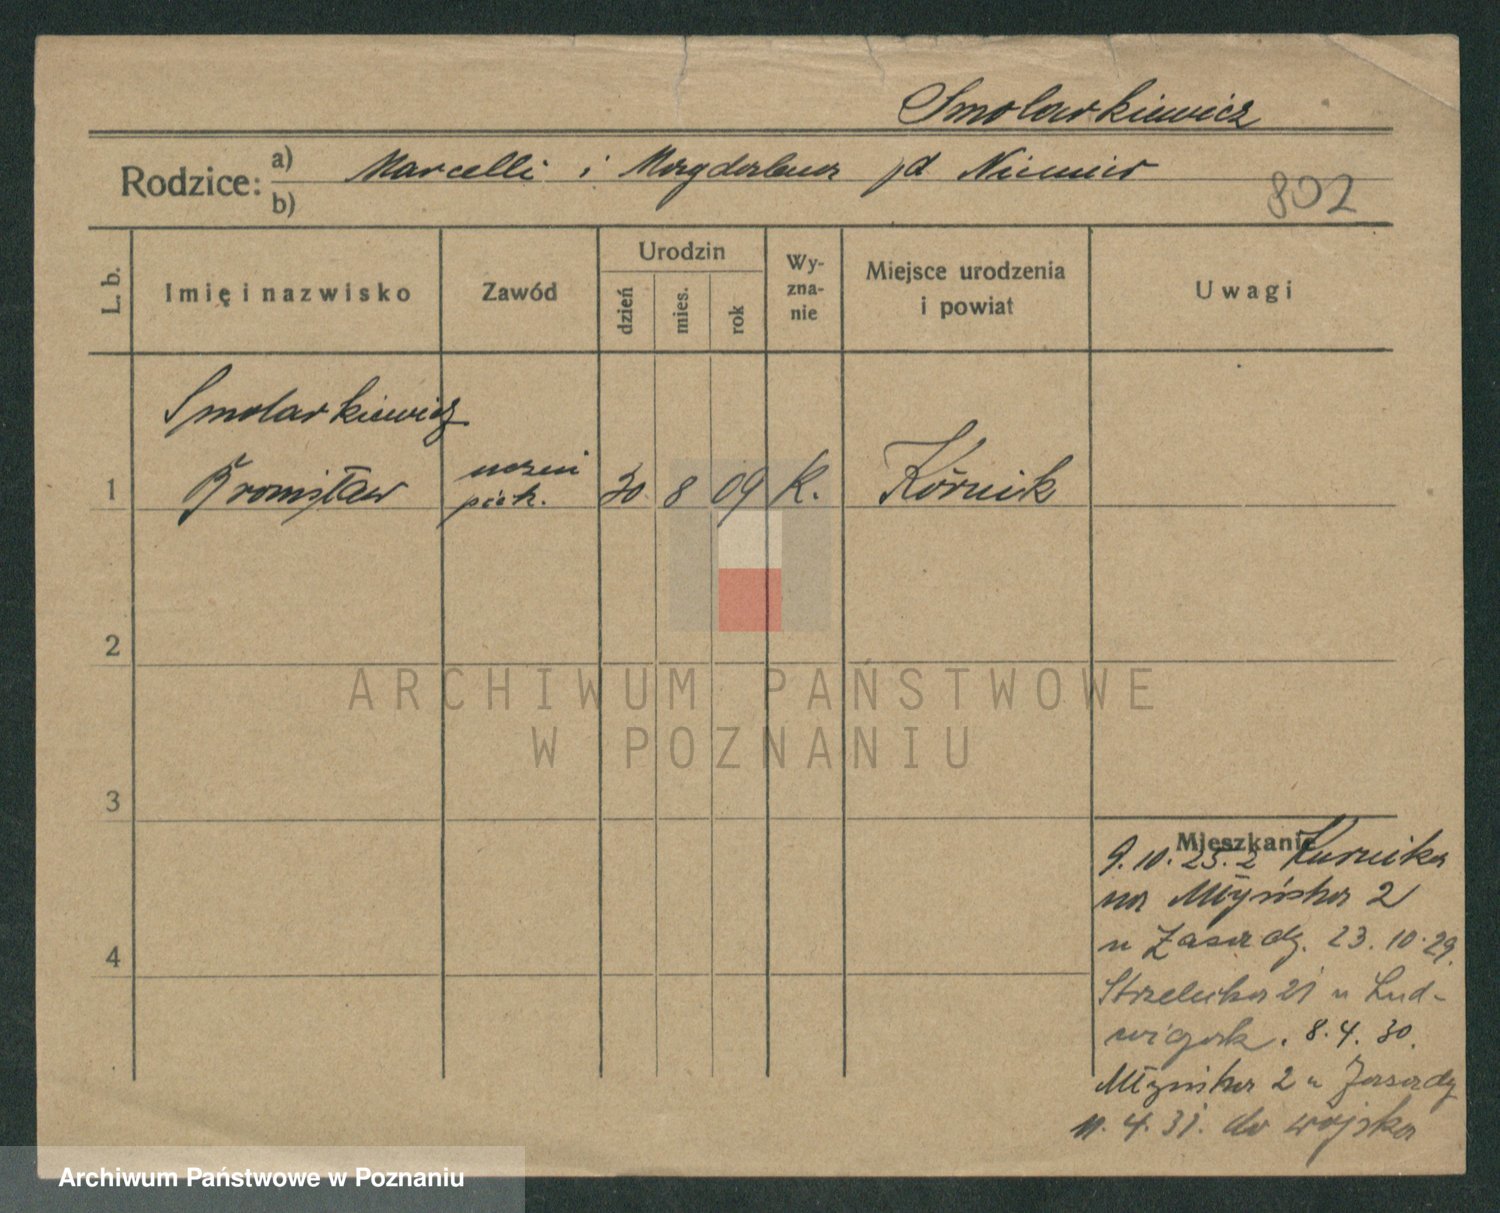 Smolarkiewicz
Rodzice: a) Marcelli i Magdalena
b)
802
L. b.
Imię i nazwisko
Zawód
Urodzin
dzień
mies.
rok
Wy-
zna-
nie
Miejsce urodzenia
i powiat
Uwagi
Smolarkiewicz
1 Bronisław uczeń piek. 30 8 09 K. Kórnik
2
ARCHIWUM PAŃSTWOWE
W POZNANIU
3
Mieszkanie
9.10.25. z Kurnika
na Młyńska 2
u Zasady. 23.10.29.
Strzelecka 21 u Lud-
wigak. 8.4.30.
4
Młyńska 2 u Zasady
11.4.31. do wojska
Archiwum Państwowe w Poznaniu